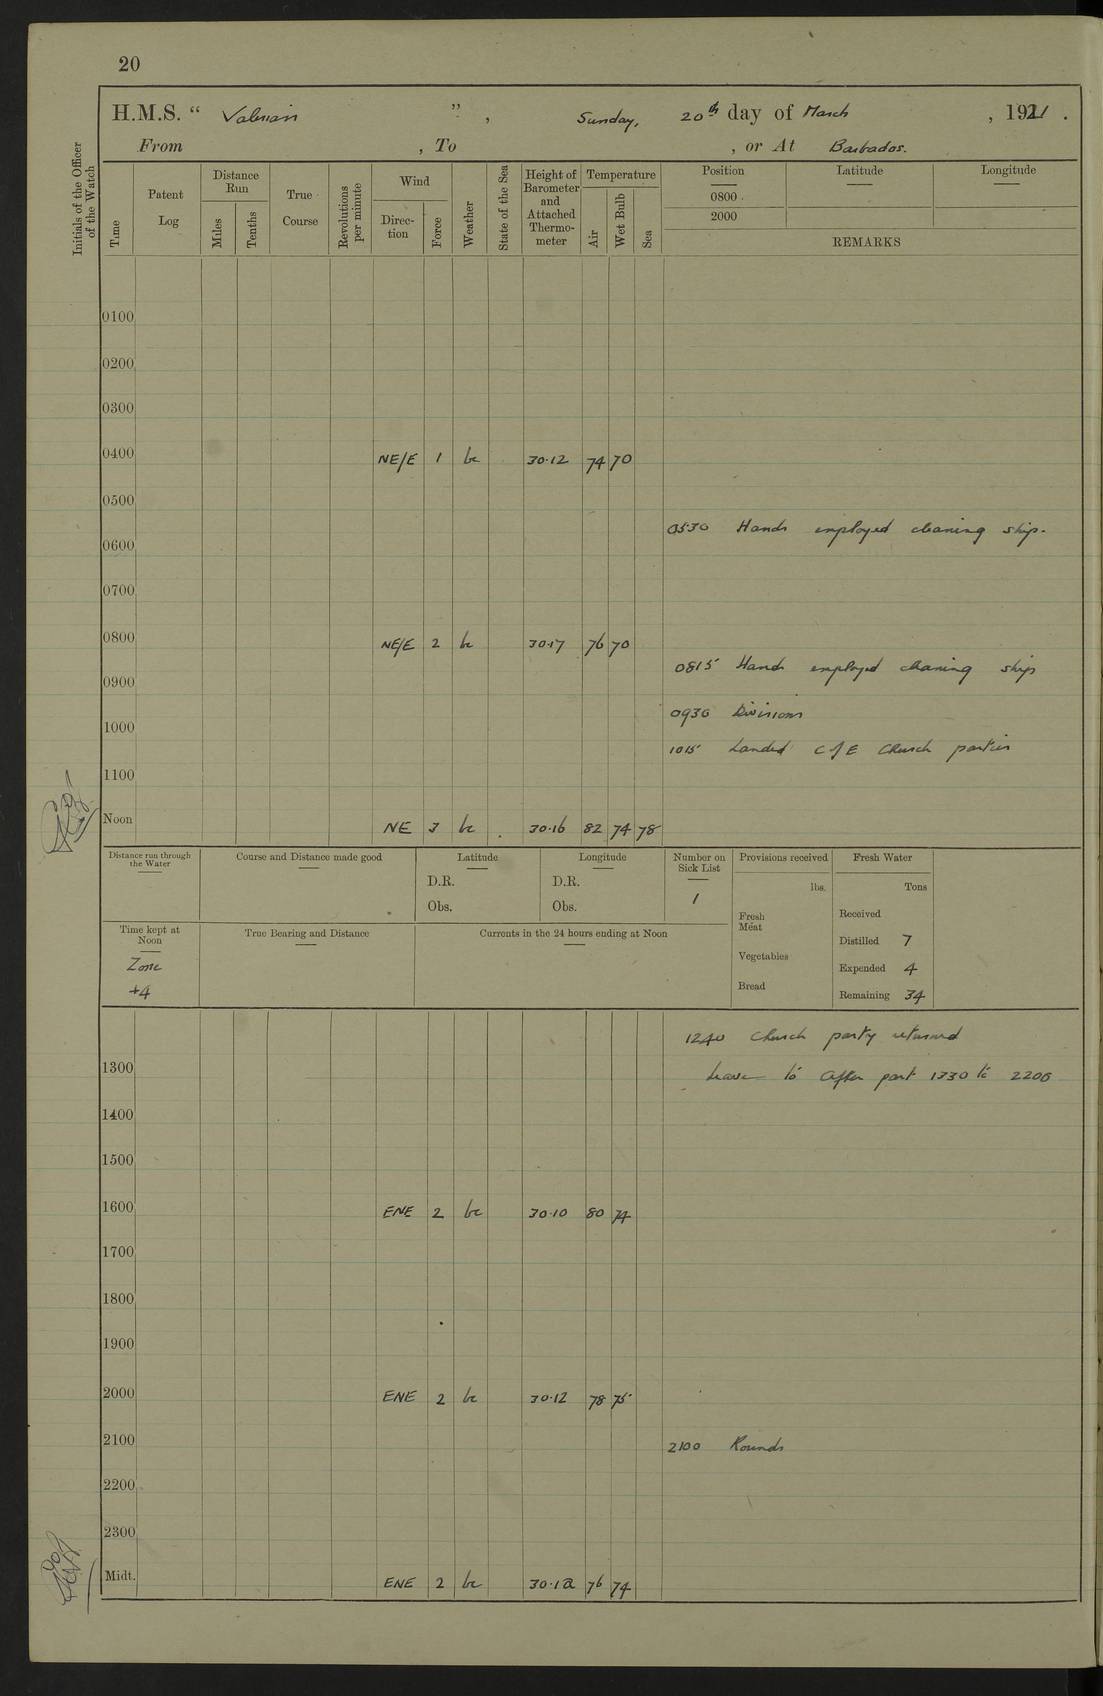 20
H.M.S. “ Valerian ” , Sunday, 20th day of March , 1921 .
From , To , or At Barbados.
Initials of the Officer of the Watch
Time
Patent Log
Distance Run
Miles
Tenths
True Course
Revolutions per minute
Wind
Direction
Force
Weather
State of the Sea
Height of Barometer and Attached Thermometer
Temperature
Air
Wet Bulb
Sea
Position Latitude Longitude
0800
2000
REMARKS
0100
0200
0300
0400 NE/E 1 bc 30.12 74 70
0500
0530 Hands employed cleaning ship.
0600
0700
0800 NE/E 2 bc 30.17 76 70
0815 Hands employed cleaning ship
0900
0930 Divisions
1000
1015 Landed C of E Church parties
1100
Noon NE 3 bc 30.16 82 74 78
Distance run through the Water
Course and Distance made good
Latitude
D.R.
Obs.
Longitude
D.R.
Obs.
Number on Sick List
1
Provisions received
lbs.
Fresh Meat
Vegetables
Bread
Fresh Water
Tons
Received
Distilled 7
Expended 4
Remaining 34
Time kept at Noon
Zone
+4
True Bearing and Distance
Currents in the 24 hours ending at Noon
1240 Church party returned
1300
Leave to after part 1330 to 2200
1400
1500
1600 ENE 2 bc 30.10 80 74
1700
1800
1900
2000 ENE 2 bc 30.12 78 75
2100
2100 Rounds
2200
2300
Midt. ENE 2 bc 30.12 76 74